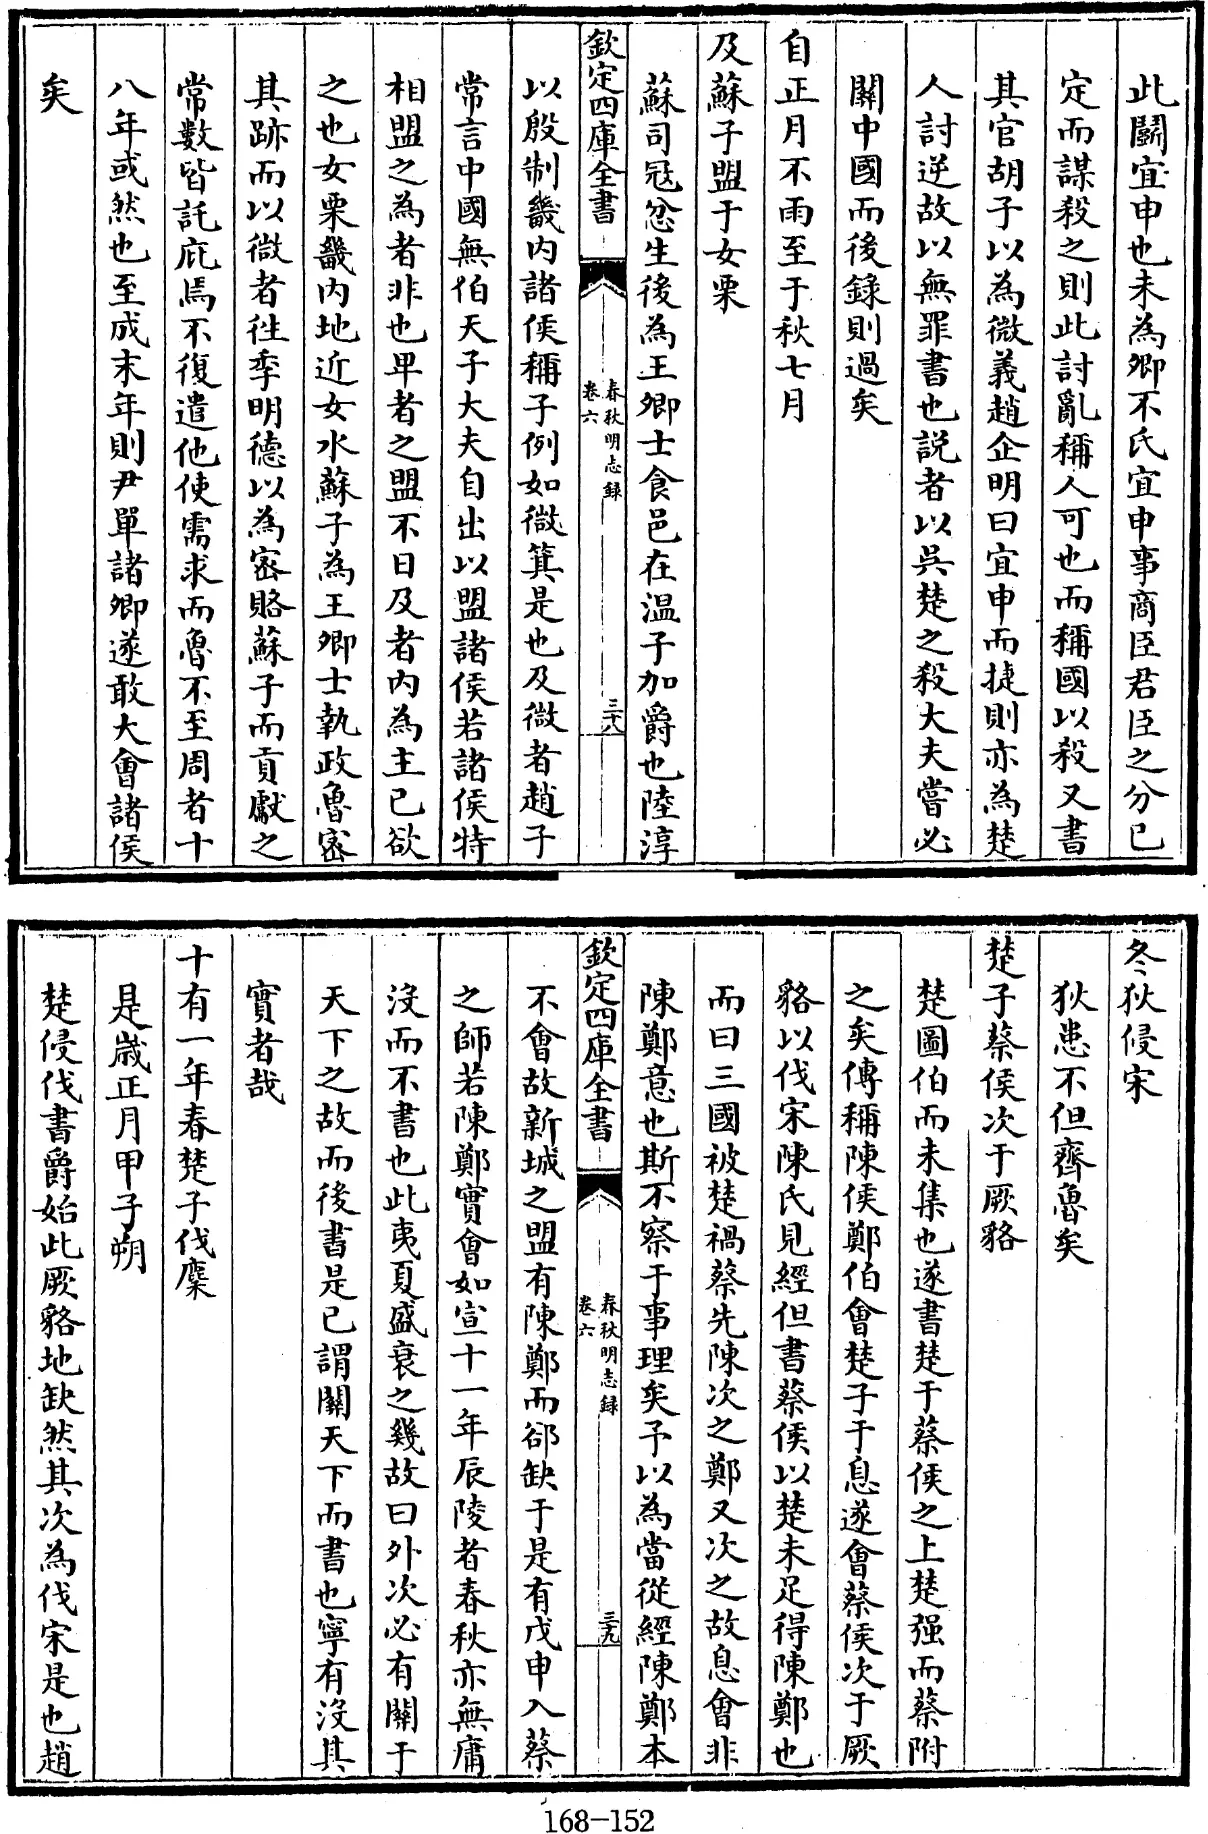 此鬭宜申也未為卿不氏宜申事商臣君臣之分已
定而謀殺之則此討亂稱人可也而稱國以殺又書
其官胡子以為微義趙企明曰宜申而捷則亦為楚
人討逆故以無罪書也説者以吳楚之殺大夫嘗必
關中國而後錄則過矣
自正月不雨至于秋七月
及蘇子盟于女栗
蘇司冦忿生後為王卿士食邑在温子加爵也陸淳
欽定四庫全書
春秋明志録
卷六
三十八
以殷制畿内諸侯稱子例如微箕是也及微者趙子
常言中國無伯天子大夫自出以盟諸侯若諸侯特
相盟之為者非也卑者之盟不日及者内為主已欲
之也女栗畿内地近女水蘇子為王卿士執政魯宻
其跡而以微者徃季明德以為宻賂蘇子而貢獻之
常數皆託庇焉不復遣他使需求而魯不至周者十
八年或然也至成末年則尹單諸卿遂敢大會諸侯
矣
冬狄侵宋
狄患不但齊魯矣
楚子蔡侯次于厥貉
楚圖伯而未集也遂書楚于蔡侯之上楚强而蔡附
之矣傳稱陳侯鄭伯會楚子于息遂會蔡侯次于厥
貉以伐宋陳氏見經但書蔡侯以楚未足得陳鄭也
而曰三國被楚禍蔡先陳次之鄭又次之故息會非
陳鄭意也斯不察于事理矣予以為當從經陳鄭本
欽定四庫全書
春秋明志録
卷六
三十九
不會故新城之盟有陳鄭而郤缺于是有戊申入蔡
之師若陳鄭實會如宣十一年辰陵者春秋亦無庸
沒而不書也此夷夏盛衰之幾故曰外次必有關于
天下之故而後書是已謂關天下而書也寧有沒其
實者哉
十有一年春楚子伐麇
是歲正月甲子朔
楚侵伐書爵始此厥貉地缺然其次為伐宋是也趙
168-152